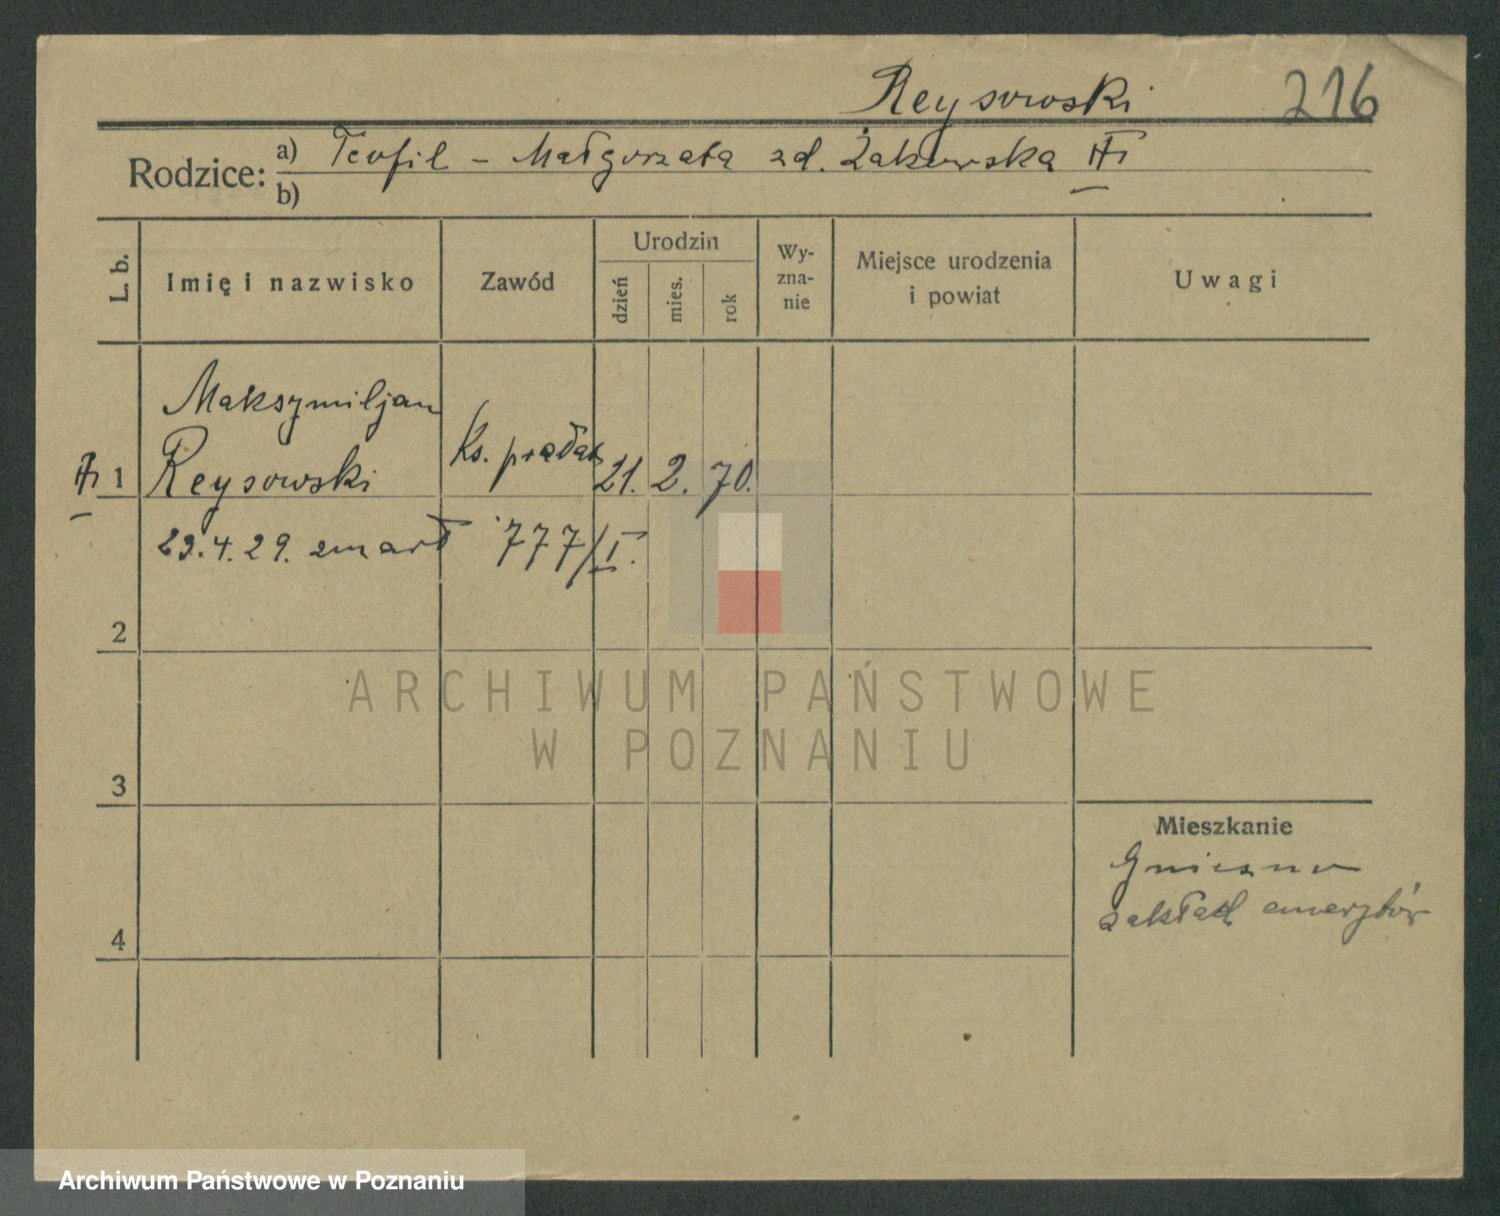 Reysowski 216
Rodzice: a) Teofil – Małgorzata zd. Żakowska
b)
L. b. Imię i nazwisko Zawód Urodzin dzień mies. rok Wy-zna-nie Miejsce urodzenia i powiat Uwagi
Maksymiljan
1 Reysowski Ks. prałat 21. 2. 70.
23.4.29. zmarł 777/I.
2
ARCHIWUM PAŃSTWOWE
W POZNANIU
3
Mieszkanie
Gniezno
zakład emerytów
4
Archiwum Państwowe w Poznaniu